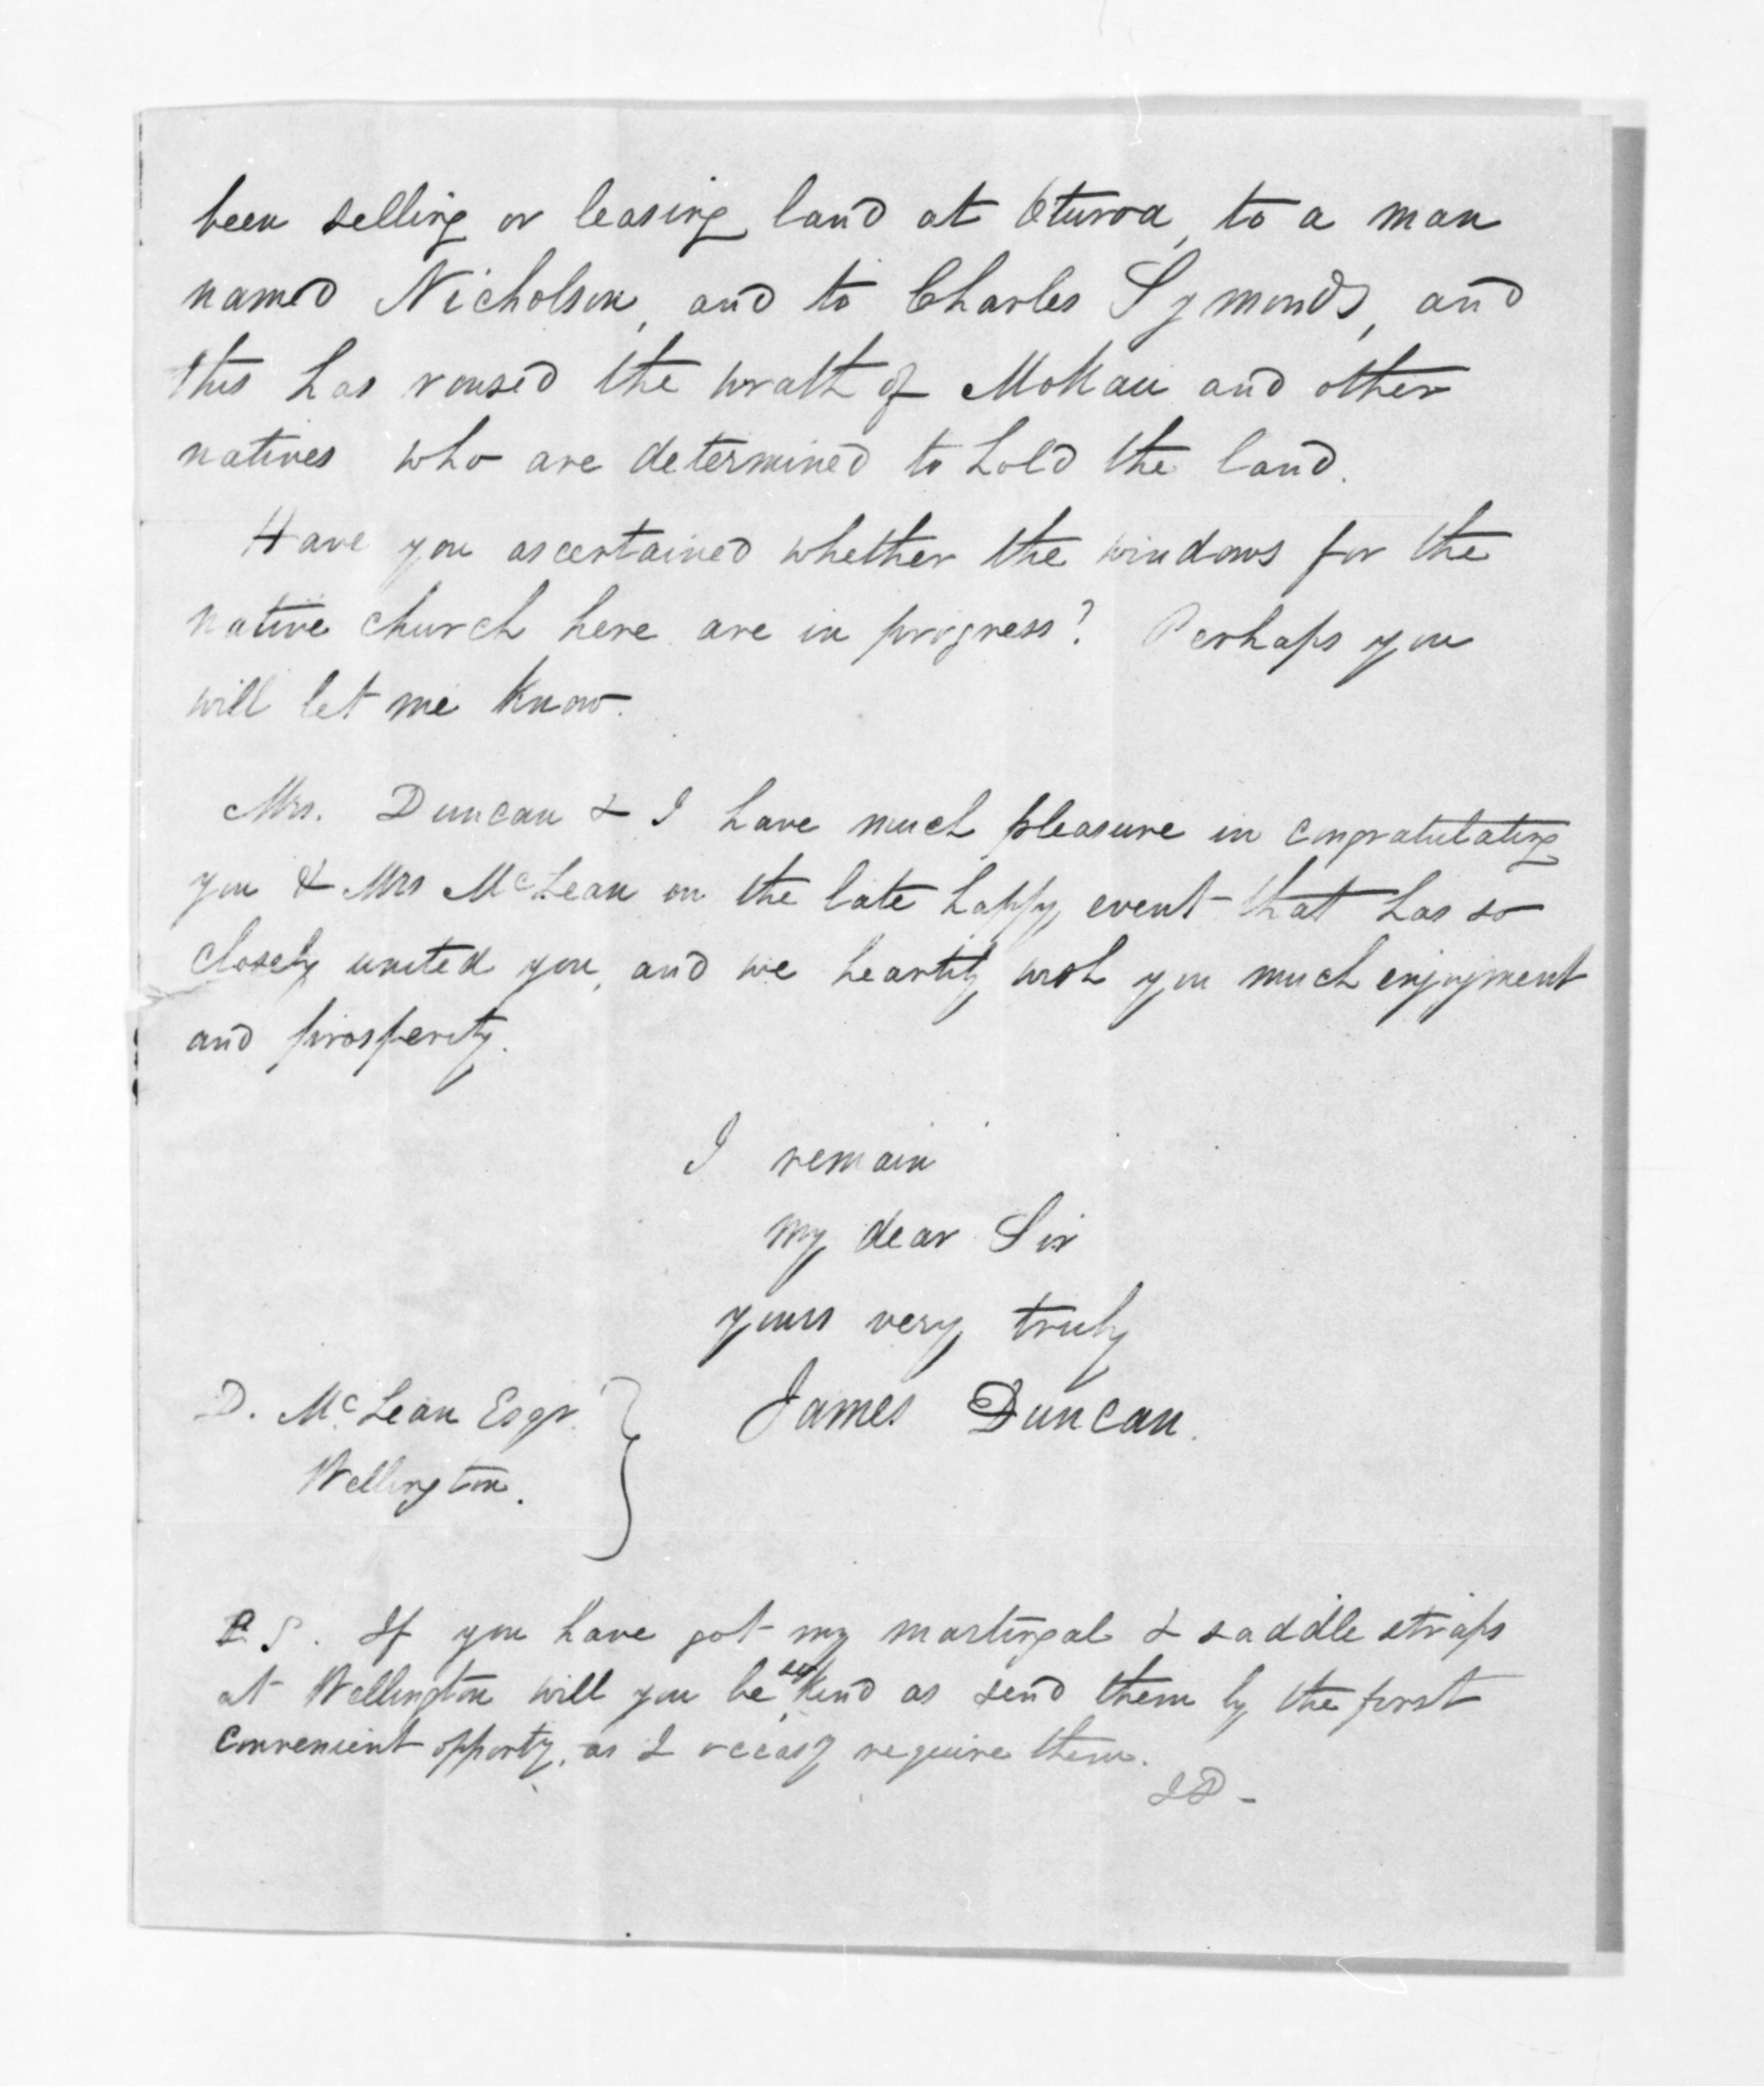 been selling or leasing land at Oturoa, to a man
named Nicholson, and to Charles Symonds, and
this has roused the wrath of Mokau and other
natives who are determined to hold the land.
Have you ascertained whether the windows for the
native church here are in progress? Perhaps you
will let me know.
Mrs. Duncan & I have much pleasure in congratulating
you & Mrs McLean on the late happy event that has so
closely united you, and we heartily wish you much enjoyment
and prosperity.
I remain
my dear Sir
yours very truly
James Duncan.
D. McLean Esqr.
Wellington.
P.S. If you have got my martingal & saddle straps
at Wellington will you be so kind as send them by the first
convenient opporty. as I occasy require them.
JD -